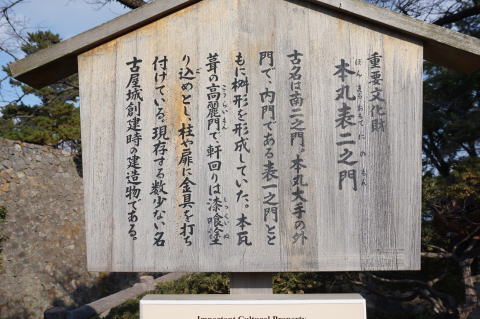 重要文化財
本丸表二之門
ほんまるおもてにのもん
古名は南二之門。本丸大手の外
門で、内門である表一之門とと
もに桝形を形成していた。本瓦
葺の高麗門で軒回りは漆喰塗
こうらいもん
しっくいぬ
り込めとし、柱や扉に金具を打ち
ご
付けている。現存する数少ない名
古屋城創建時の建造物である。
Important Cultural Property